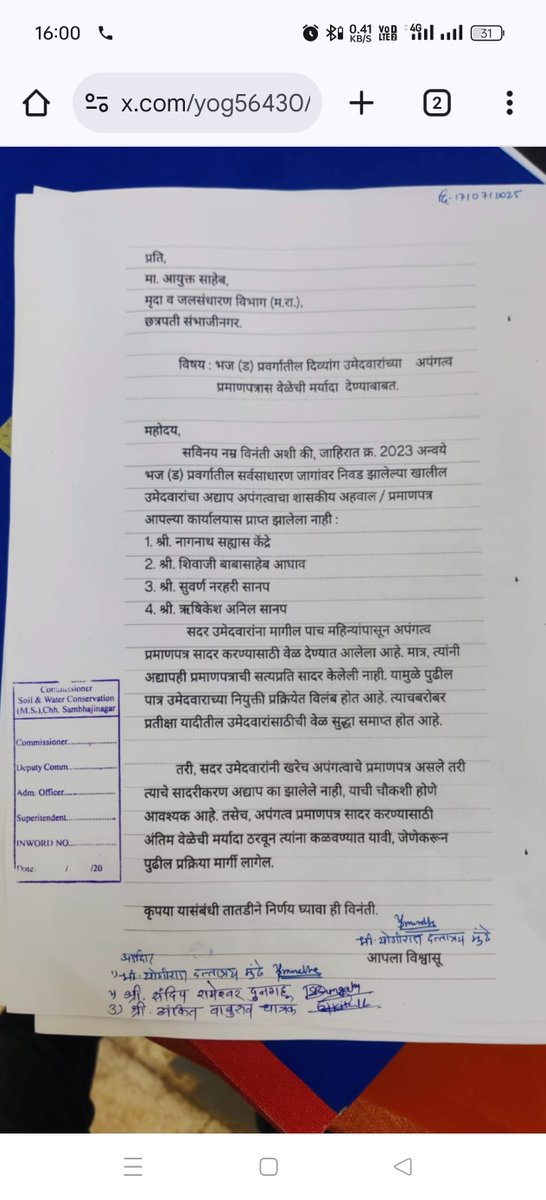 16:00
0.41 KB/S
VoD LTE2
4G
31
x.com/yog56430/
2
दि. 17/07/2025
प्रति,
मा. आयुक्त साहेब,
मृदा व जलसंधारण विभाग (म.रा.),
छत्रपती संभाजीनगर.
विषय : भज (ड) प्रवर्गातील दिव्यांग उमेदवारांच्या अपंगत्व
प्रमाणपत्रास वेळेची मर्यादा देण्याबाबत.
महोदय,
सविनय नम्र विनंती अशी की, जाहिरात क्र. 2023 अन्वये
भज (ड) प्रवर्गातील सर्वसाधारण जागांवर निवड झालेल्या खालील
उमेदवारांचा अद्याप अपंगत्वाचा शासकीय अहवाल / प्रमाणपत्र
आपल्या कार्यालयास प्राप्त झालेला नाही :
1. श्री. नागनाथ सह्यास केंद्रे
2. श्री. शिवाजी बाबासाहेब आघाव
3. श्री. सुवर्ण नरहरी सानप
4. श्री. ऋषिकेश अनिल सानप
सदर उमेदवारांना मागील पाच महिन्यांपासून अपंगत्व
प्रमाणपत्र सादर करण्यासाठी वेळ देण्यात आलेला आहे. मात्र, त्यांनी
अद्यापही प्रमाणपत्राची सत्यप्रति सादर केलेली नाही. यामुळे पुढील
पात्र उमेदवाराच्या नियुक्ती प्रक्रियेत विलंब होत आहे. त्याचबरोबर
प्रतीक्षा यादीतील उमेदवारांसाठीची वेळ सुद्धा समाप्त होत आहे.
तरी, सदर उमेदवारांनी खरेच अपंगत्वाचे प्रमाणपत्र असले तरी
त्याचे सादरीकरण अद्याप का झालेले नाही, याची चौकशी होणे
आवश्यक आहे. तसेच, अपंगत्व प्रमाणपत्र सादर करण्यासाठी
अंतिम वेळेची मर्यादा ठरवून त्यांना कळवण्यात यावी, जेणेकरून
पुढील प्रक्रिया मार्गी लागेल.
कृपया यासंबंधी तातडीने निर्णय घ्यावा ही विनंती.
Commissioner
Soil & Water Conservation
(M.S.),Chh. Sambhajinagar
Commissioner
Deputy Comm
Adm: Officer
Superitendent
INWORD NO
Date: / /20
श्री. योगीराज दत्तात्रय मुंढे
आपला विश्वासू
अर्जदार
१) श्री. योगीराज दत्तात्रय मुंढे
२) श्री. संदिप रामेश्वर
3) श्री. अंकित बाबुराव